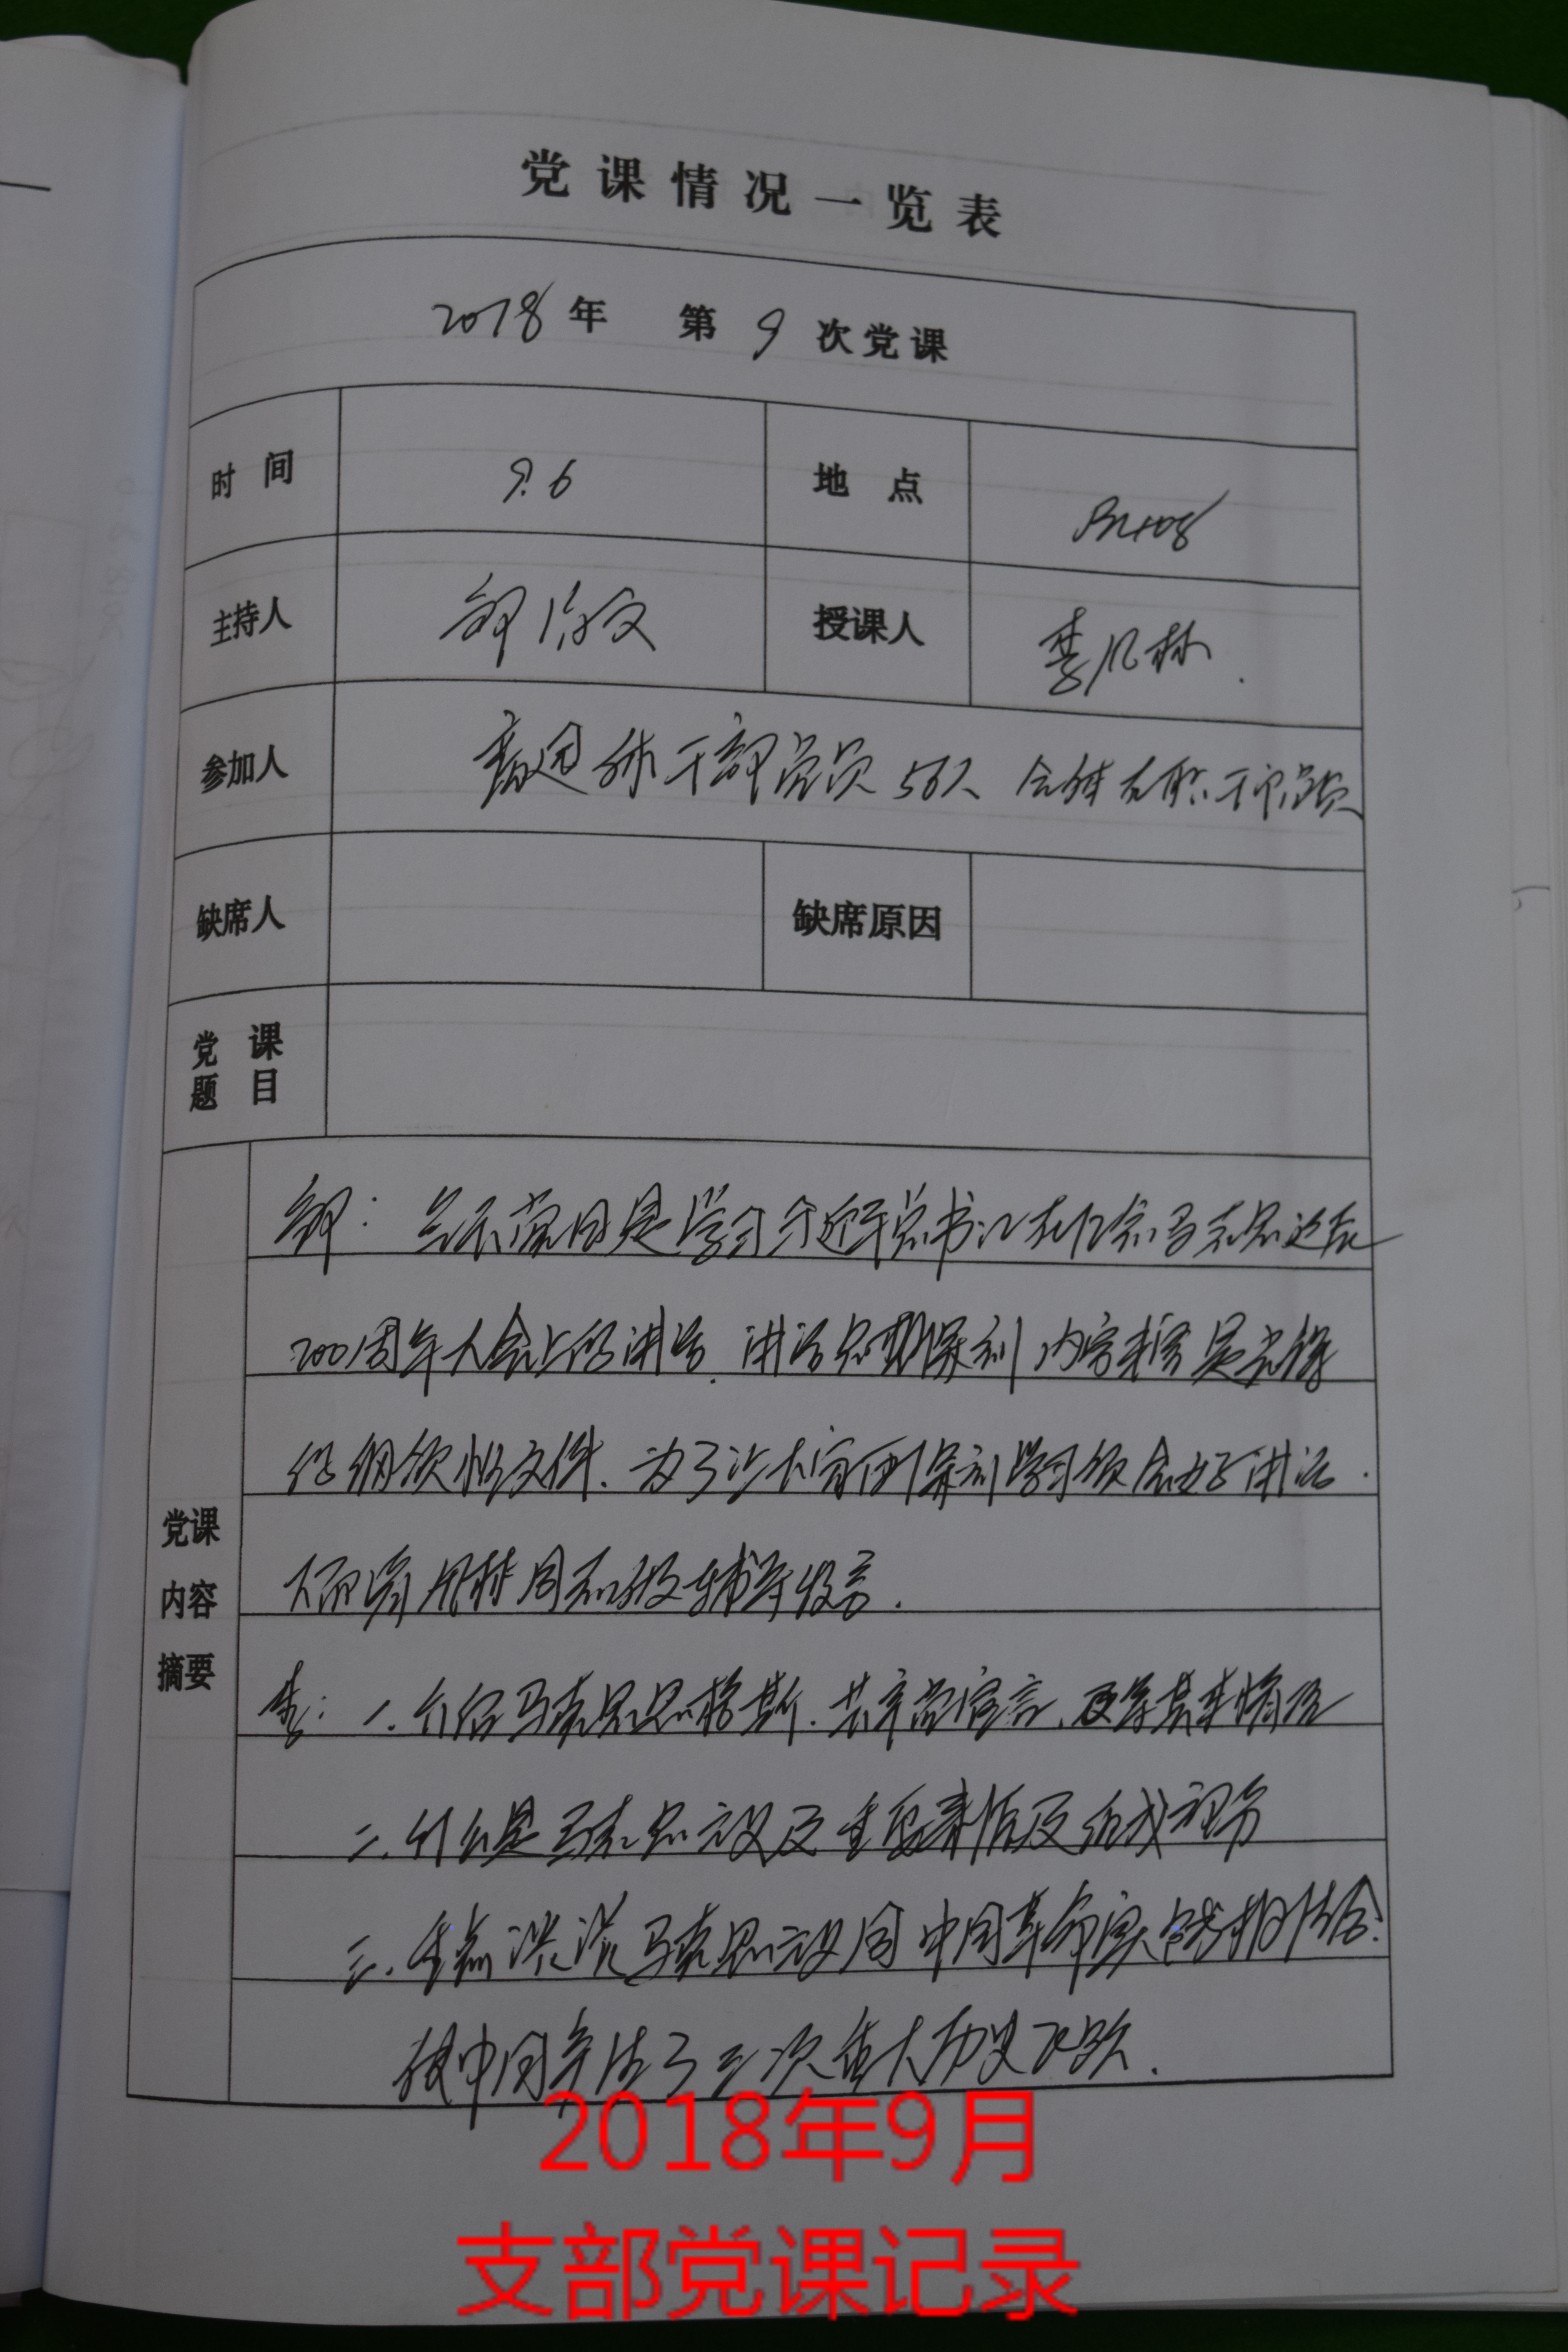 党课情况一览表
2018年 第9次党课
时间 9.6 地点
主持人 授课人 李凡林
参加人 离退休干部党员50人 全体在职干部党员
缺席人 缺席原因
党课题目
党课内容摘要
今天 内容是学习习近平总书记在纪念马克思诞辰
200周年大会上的讲话. 讲话思想深刻 内容丰富 是光辉
的纲领性文件. 为了让大家 深刻学习领会好讲话.
下面请凡林同志做辅导发言.
李: 一. 介绍马克思恩格斯. 共产党宣言. 及等基本情况
二. 什么是马克思主义及主要来源及组成部分
三. 重点谈谈马克思主义同中国革命实践相结合.
使中国产生了三次重大历史飞跃.
2018年9月
支部党课记录